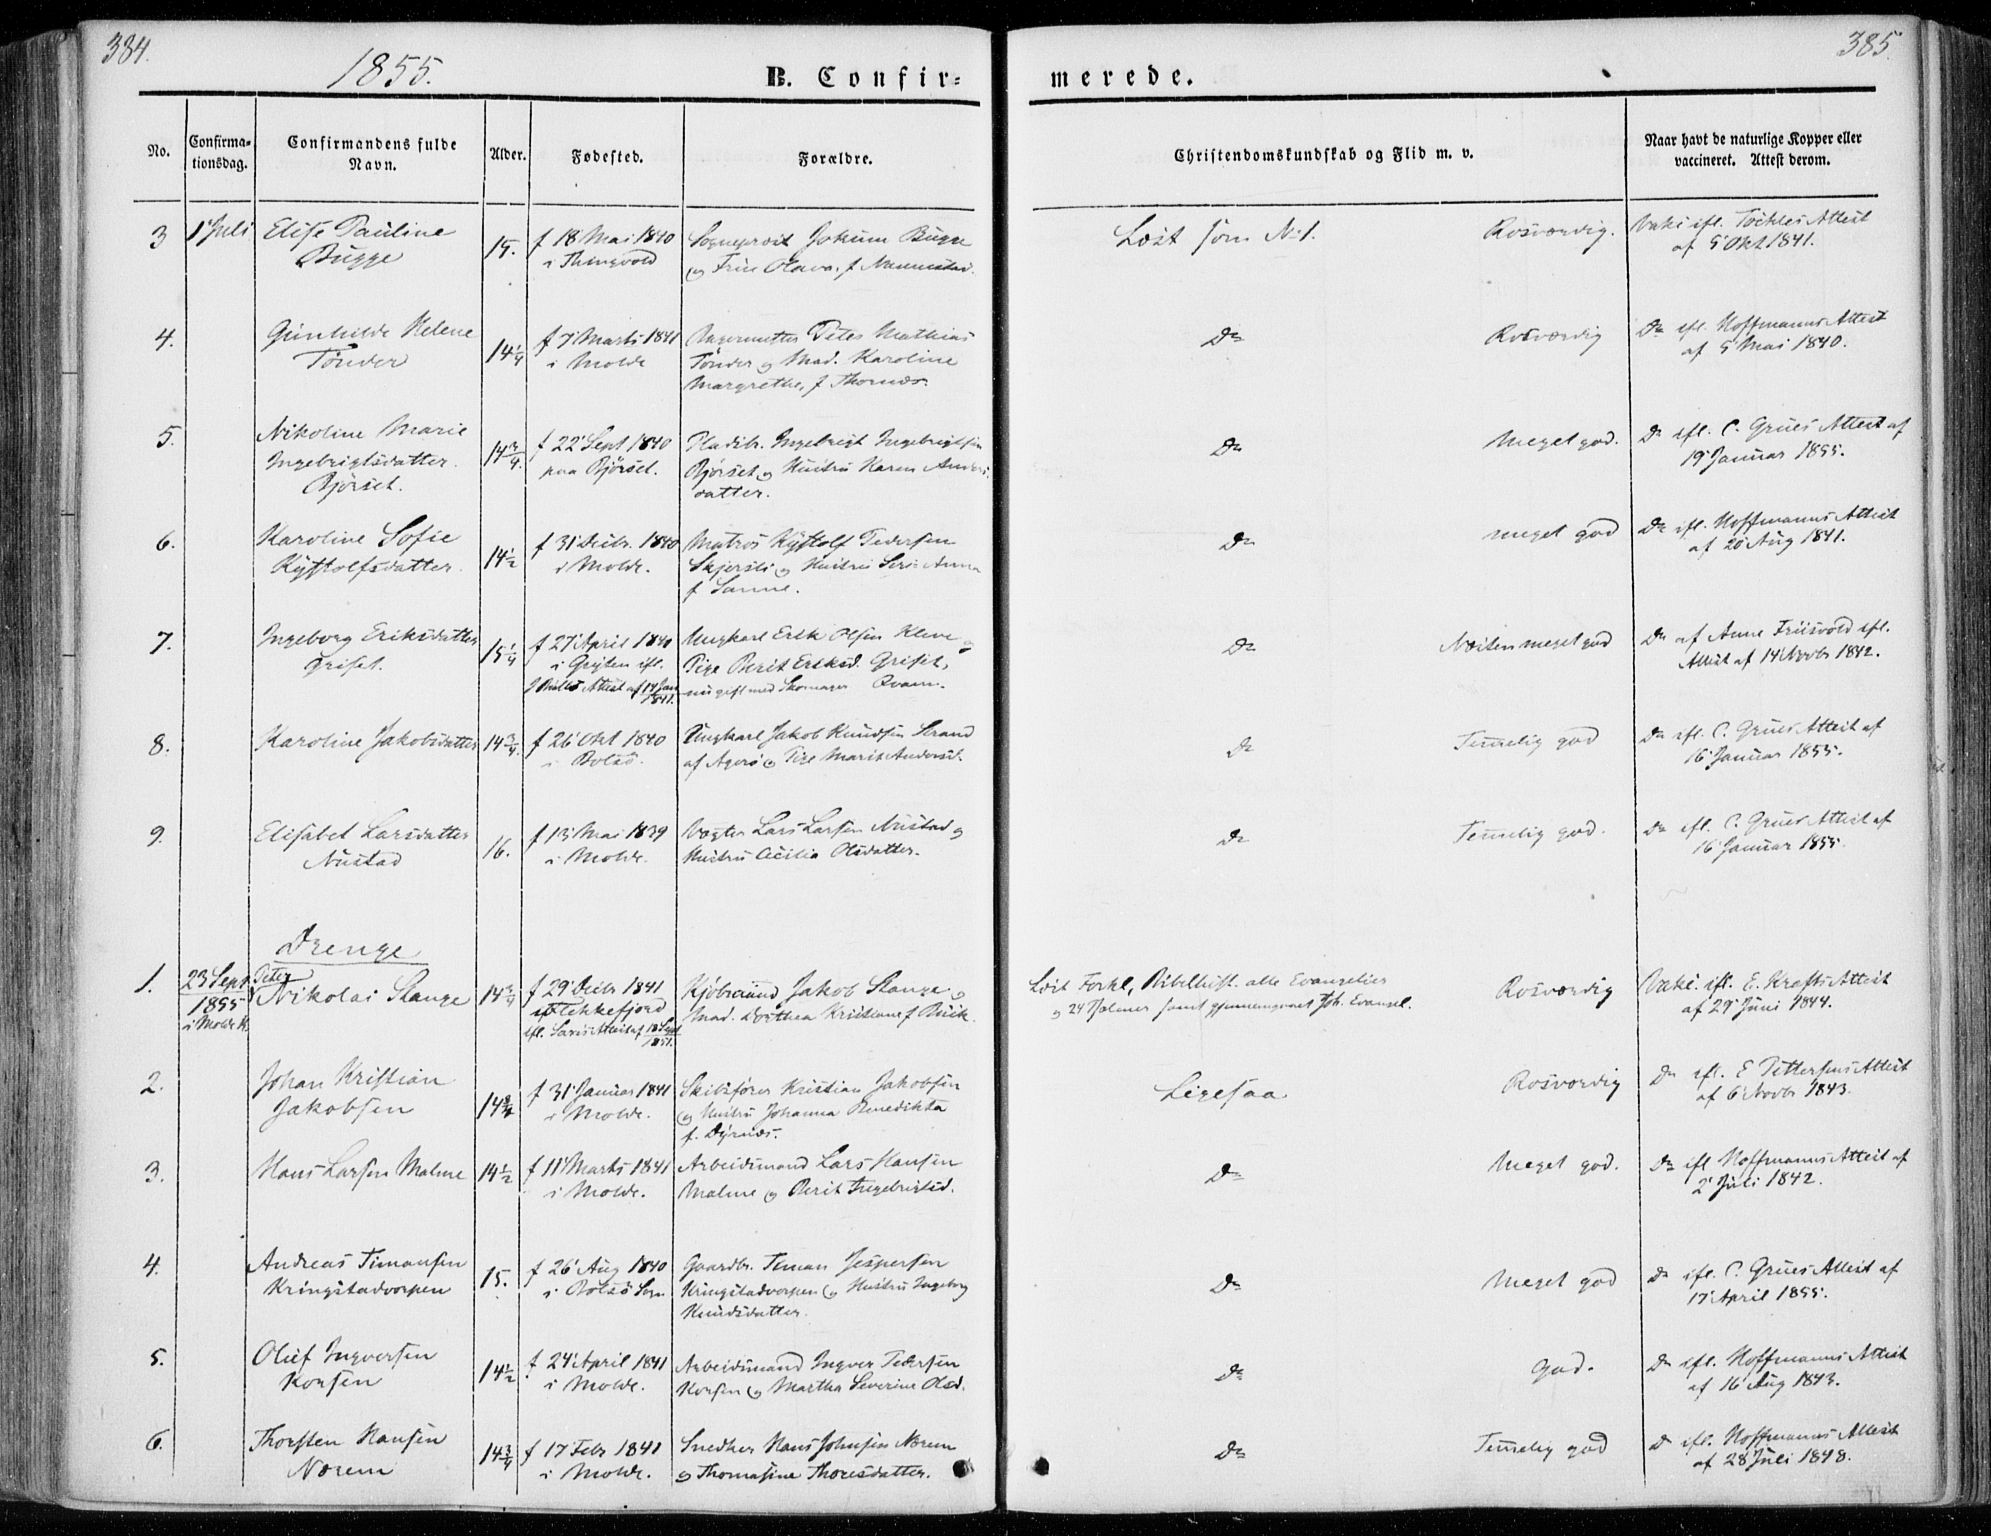 384.
1855.
B. Confir=
merede.
385.
No.
Confirma=
tionsdag.
Confirmandens fulde
Navn.
Alder.
Fødested.
Forældre.
Christendomskundskab og Flid m. v.
Naar havt de naturlige Kopper eller
vaccineret. Attest derom.
3 1 Juli Elise Pauline
Bugge
15.
f 18 Mai 1840
i Thingvold
Sogneprest Jokum Bugge
og Frue Olava, f
Læst som No 1.
Rosværdig.
Vaks ifl. Attest
af 5 Okt 1841.
4.
Gunhilde Helene
Tønder
14 1/4
f 7 Marts 1841
i Molde
Peter Mathias
Tønder og Mad. Karoline
Margrethe, f Thornæs.
Do
Rosværdig
Do ifl. Hoffmanns Attest
af 5 Mai 1840.
5.
Nikoline Marie
Ingebrigtsdatter
Bjørset.
14 3/4.
f 22 Sept 1840
paa Bjørset.
Pladsbr. Ingebrigt Ingebrigtsen
Bjørset og Hustru Karen Anders-
datter.
Do
Meget god.
Do ifl. C. Grues Attest af
19 Januar 1855.
6.
Karoline Sofie
Kystolfsdatter
14 1/2
f 31 Decbr. 1840
i Molde.
Matros Kystolf Pedersen
og Hustru Anna
f Sanne.
Do
meget god
Do ifl. Hoffmanns Attest
af 20 Aug 1841.
7.
Ingeborg Eriksdatter
Griset.
15 1/4
f 27 April 1840
i Grytten ifl.
Attest af 14 Jan
1841.
Ungkarl Erik Olsen Kleve og
Pige Berit Eriksd. Griset,
nu gift med Skomager Qvam.
Do
Næsten meget god
Do af Anne Friisvold ifl.
Attest af 14 Novbr 1842.
8.
Karoline Jakobsdatter
14 3/4.
f 26 Okt 1840
i Bolsø.
Ungkarl Jakob Knudsen Strand
af Agerø og Pige Marit Andersd.
Do
Temmelig god
Do ifl. C. Grues Attest af
16 Januar 1855.
9.
Elisabet Larsdatter
Nustad
16.
f 13 Mai 1839
i Molde.
Vægter Lars Larsen Nustad og
Hustru Cicilia Olsdatter.
Do
Temmelig god.
Do ifl. C. Grues Attest af
16 Januar 1855.
Drenge
1.
23 Sept
1855
i Molde K.
Peter
Nikolai Stange
14 3/4
f 29 Decbr 1841
i Flekkefjord
ifl. Attest af 18 Sept
1851.
Kjøbmand Jakob Stange og
Mad. Dorthea Kristiane f
Læst Forkl, Bibelhist. alle Evangelier
og 24 Psalmer samt gjennemgaaet Joh. Evangel.
Rosværdig
Vaks. ifl. E. Krafts Attest
af 29 Juni 1844.
2.
Johan Kristian
Jakobsen
14 3/4
f 31 Januar 1841
i Molde.
Skibsfører Kristian Jakobsen
og Hustru Johanna Benedikta
f. Dyrnæs.
Ligesaa
Rosværdig
Do ifl. E Pettersens Attest
af 6 Novbr 1843.
3.
Hans Larsen Malme
14 1/2
f 11 Marts 1841
i Molde.
Arbeidsmand Lars Hansen
Malme og Berit Ingebrigtsd.
Do
Meget god.
Do ifl Hoffmanns Attest af
2 Juli 1842.
4.
Andreas Timansen
Kringstadvorpen
15.
f 26 Aug 1840
i Bolsø Sogn
Gaardbr. Timan Jespersen
Kringstadvorpen og Hustru Ingeborg
Knudsdatter.
Do
Meget god
Do ifl. C. Grues Attest af
17 April 1855.
5.
Oluf Ingversen
Korsen
14 1/2
f 24 April 1841
i Molde.
Arbeidsmand Ingver Pedersen
Korsen og Martha Severine Olsd.
Do
God.
Do ifl. Hoffmanns Attest
af 16 Aug 1843.
6.
Thorsten Hansen
Nerem
14 3/4
f 17 Febr 1841
i Molde.
Snedker Hans Johnsen Nerem
og Thomasine Thoresdatter.
Do
Temmelig god
D ifl. Hoffmanns Attest
af 28 Juli 1848.